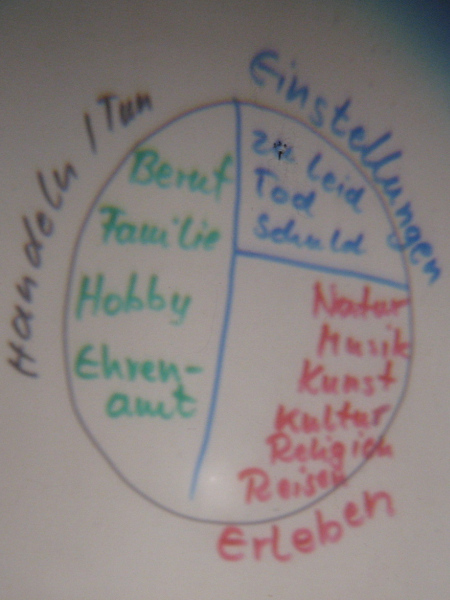 Handeln / Tun
Beruf
Familie
Hobby
Ehren-
amt
Einstellungen
zu Leid
Tod
Schuld
Natur
Musik
Kunst
Kultur
Religion
Reisen
Erleben